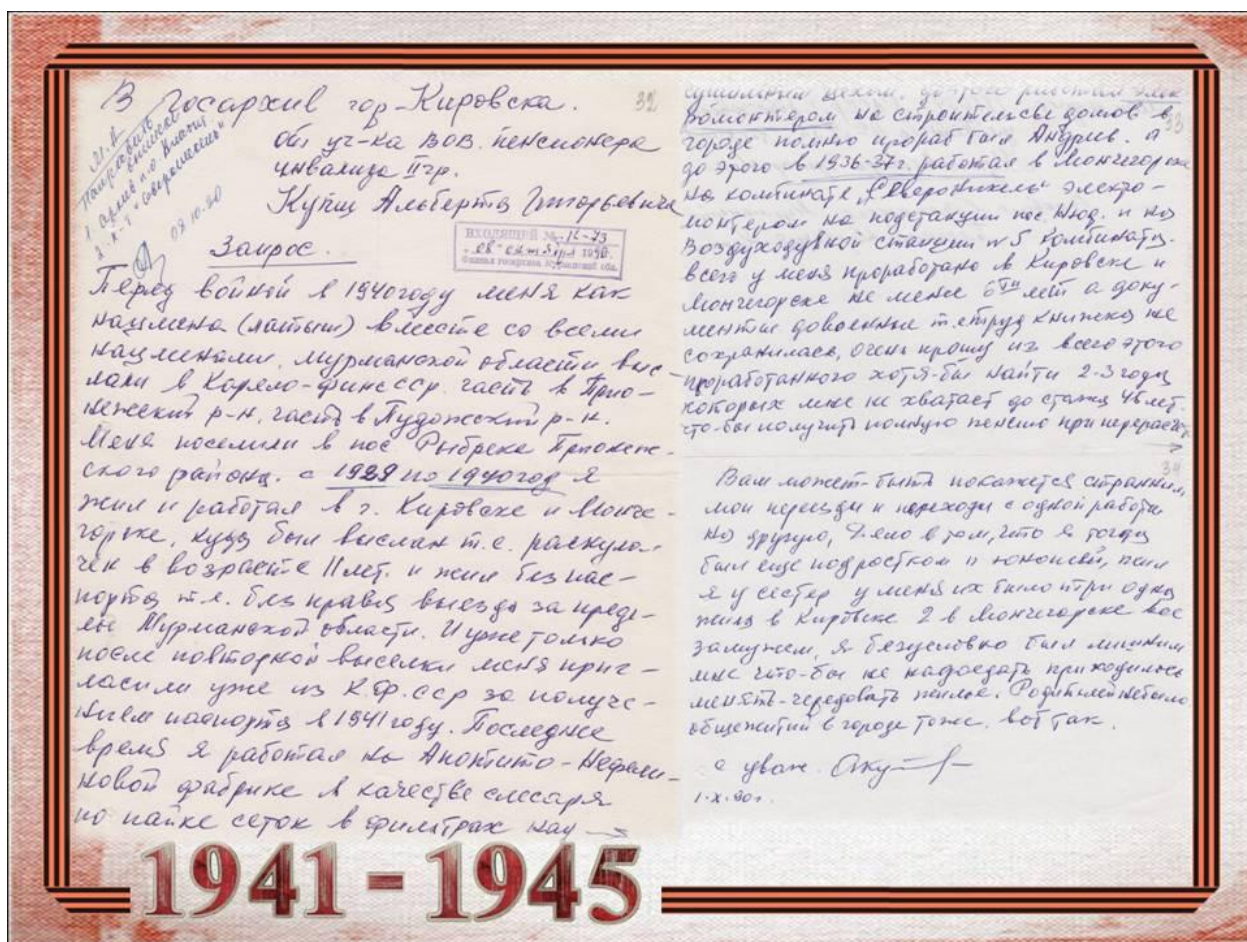 В Госархив гор-Кировска.
32
от уч-ка ВОВ. пенсионера
инвалида II гр.
Купш Альберта Григорьевича
М.А.
Направить
1. архив п.о.
2. "
09.10.90
ВХОДЯЩИЙ № 12-73
"08" октября 1990.
Филиал госархива Мурманской обл.
Запрос.
Перед войной в 1940 году меня как
нацмена (латыш) вместе со всеми
нацменами, мурманской области, выс-
лали в Карело-финсср. часть в Прио-
нежский р-н. часть в Пудожский р-н.
Меня поселили в пос Рыбрека Прионеж-
ского района. с 1929 по 1940 год я
жил и работал в г. Кировске и Монче-
горске, куда был выслан т.е. раскула-
чен в возрасте 11 лет. и жил без пас-
порта т.е. без права выезда за преде-
лы Мурманской области. И уже только
после повторной выселки меня приг-
ласили уже из К.Ф.сср за получе-
нием паспорта в 1941 году. Последнее
время я работал на Апотито-Нефели-
новой фабрике в качестве слесаря
по пайке сеток в фильтрах над
сушильным цехом. до этого работал элек
ромонтером на строительсве домов в
33
городе помню прораб был Андрив. а
до этого в 1936-37г. работал в Мончегорске
на комбинате „Североникель" электро-
монтером на подстанции пос. Нюд. и на
Воздуходувной станции № 5 комбината.
всего у меня проработано в Кировске и
Мончегорске не мение 6ти лет а доку-
менты довоенные т.е труд книжка не
сохранилась, очень прошу из всего этого
проработанного хотя-бы найти 2-3 года
которых мне не хватает до стажа лет.
что-бы получить полную пенсию при перерасч
34
Вам может-быть покажется странным,
мои переезды и переходы с одной работы
на другую, Дело в том, что я тогда
был еще подростком и юношей, жил
я у сестер у меня их было три одна
жила в Кировске 2 в Мончегорске все
замужем, я безусловно был лишним
мне что-бы не надоедать приходилось
менять-чередовать жилье. Родителей небыло
общежитий в городе тоже. вот так.
с уваж.
1.X.90г.
1941 - 1945